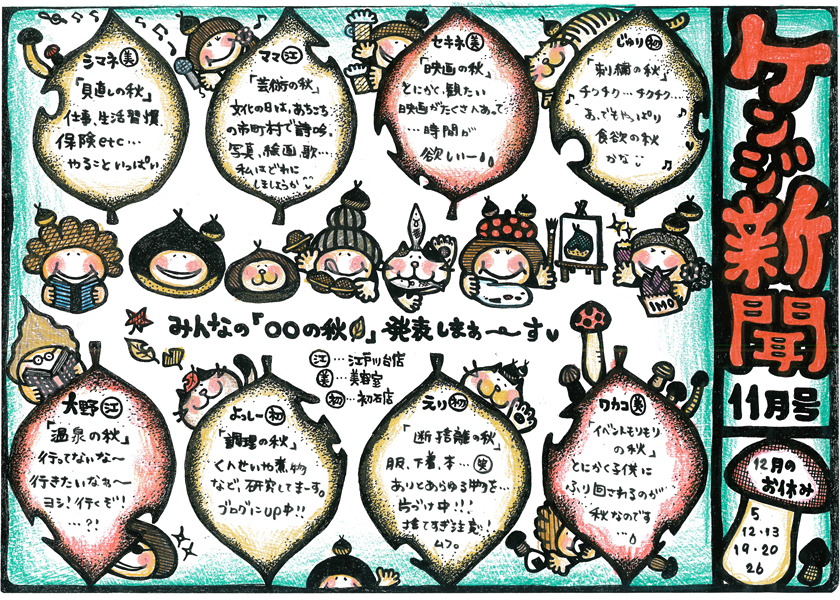 ケンジ新聞
11月号
12月の
お休み
5
12・13
19・20
26
シマネ 美
「見直しの秋」
仕事、生活習慣
保険etc…
やることいっぱい
ママ 江
「芸術の秋」
文化の日は、あちこち
の市町村で詩吟、
写真、絵画、歌…
私はどれに
しましょうか
セキネ 美
「映画の秋」
とにかく、観たい
映画がたくさんあって
…時間が
欲しいー
じゅり 初
「刺繍の秋」
チクチク…チクチク…
あ、でもやっぱり
食欲の秋
かな
IMO
みんなの「〇〇の秋」発表しまぁ〜す
江…江戸川台店
美…美容室
初…初石店
大野 江
「温泉の秋」
行ってないな〜
行きたいなぁ〜
ヨシ!行くぞ!
…?!
よっしー 初
「調理の秋」
くんせいや煮物
など、研究してまーす。
ブログにUP中!!
えり 初
「断捨離の秋」
服、下着、本… 笑
ありとあらゆる物を…
片づけ中!!!
捨てすぎ注意!!
ムフ。
ワカコ 美
「イベントモリモリ
の秋」
とにかく子供に
ふり回されるのが
秋なのです
…